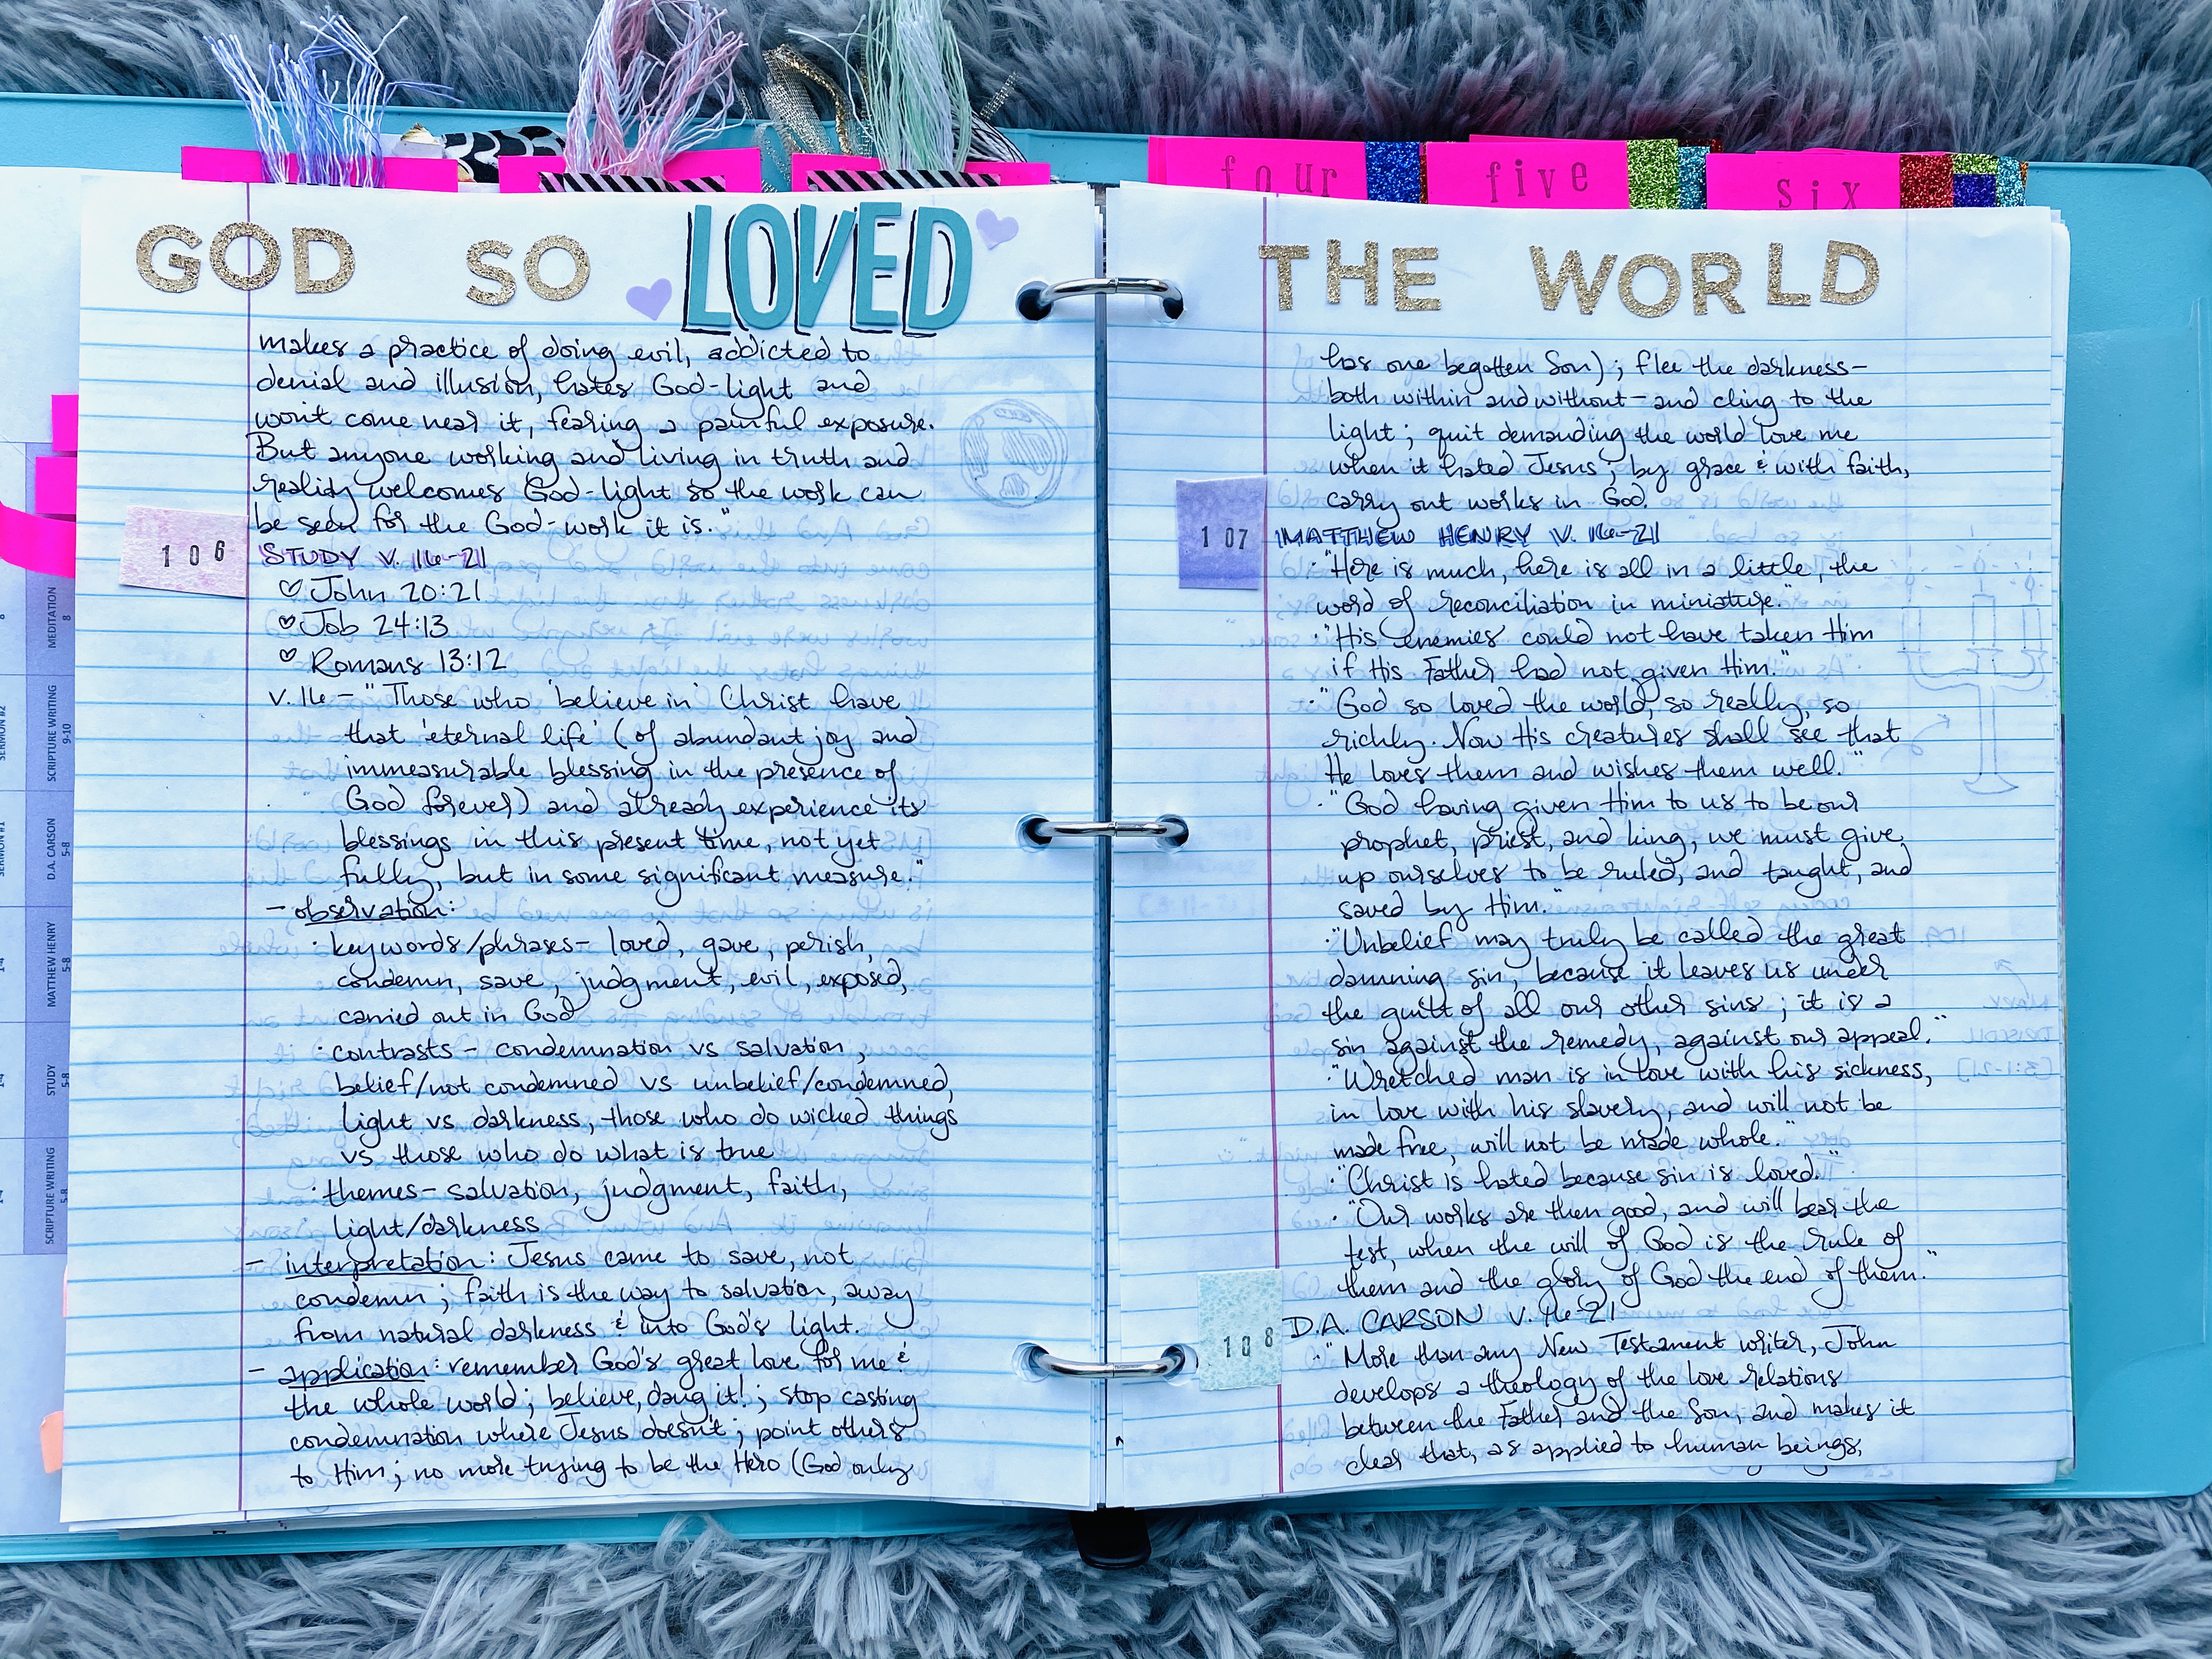 four
five
six
GOD SO LOVED
makes a practice of doing evil, addicted to
denial and illusion, hates God-light and
won't come near it, fearing a painful exposure.
But anyone working and living in truth and
reality welcomes God-light so the work can
be seen for the God-work it is."
106
STUDY V. 16-21
♡ John 20:21
♡ Job 24:13
♡ Romans 13:12
v. 16 - "Those who 'believe in' Christ have
that 'eternal life' (of abundant joy and
immeasurable blessing in the presence of
God forever) and already experience its
blessings in this present time, not yet
fully, but in some significant measure."
- observation:
· keywords/phrases - loved, gave, perish,
condemn, save, judgment, evil, exposed,
carried out in God
· contrasts - condemnation vs salvation,
belief/not condemned vs unbelief/condemned,
light vs darkness, those who do wicked things
vs those who do what is true
· themes - salvation, judgment, faith,
light/darkness
- interpretation: Jesus came to save, not
condemn; faith is the way to salvation, away
from natural darkness & into God's light.
- application: remember God's great love for me &
the whole world; believe, dang it!; stop casting
condemnation where Jesus doesn't; point others
to Him; no more trying to be the Hero (God only
MEDITATION
8
SCRIPTURE WRITING
9-10
D.A. CARSON
5-8
MATTHEW HENRY
5-8
STUDY
5-8
SCRIPTURE WRITING
5-8
THE WORLD
has one begotten Son); flee the darkness -
both within and without - and cling to the
light; quit demanding the world love me
when it hated Jesus; by grace & with faith,
carry out works in God.
107
MATTHEW HENRY V. 16-21
· "Here is much, here is all in a little, the
word of reconciliation in miniature."
· "His enemies could not have taken Him
if His Father had not given Him."
· "God so loved the world, so really, so
richly. Now His creatures shall see that
He loves them and wishes them well."
· "God having given Him to us to be our
prophet, priest, and king, we must give
up ourselves to be ruled, and taught, and
saved by Him."
· "Unbelief may truly be called the great
damning sin, because it leaves us under
the guilt of all our other sins; it is a
sin against the remedy, against our appeal."
· "Wretched man is in love with his sickness,
in love with his slavery, and will not be
made free, will not be made whole."
· "Christ is hated because sin is loved."
· "Our works are then good, and will bear the
test, when the will of God is the rule of
them and the glory of God the end of them."
108
D.A. CARSON V. 16-21
· "More than any New Testament writer, John
develops a theology of the love relations
between the Father and the Son, and makes it
clear that, as applied to human beings,